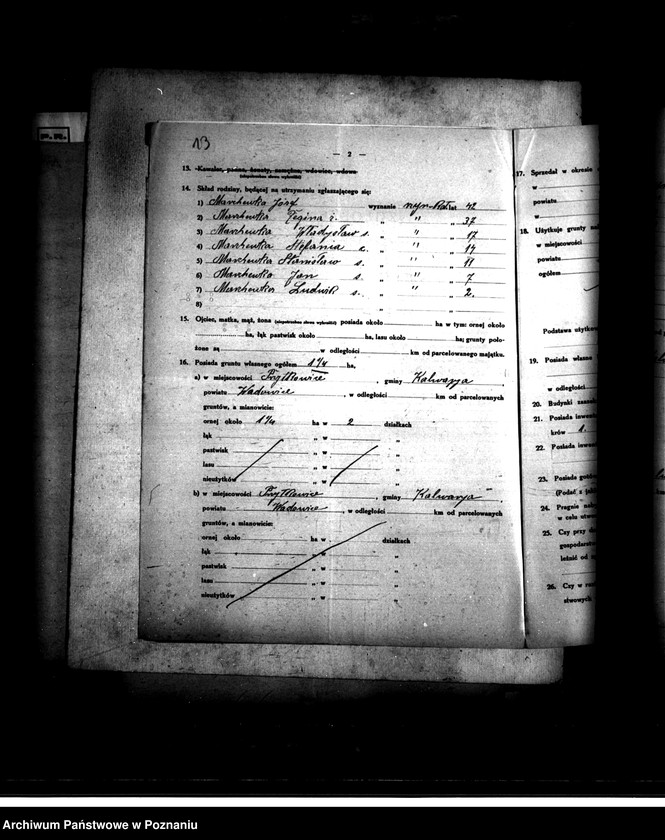 P.R.
13
— 2 —
13. Kawaler, panna, żonaty, zamężna, wdowiec, wdowa
(niepotrzebne słowa wykreślić)
14. Skład rodziny, będącej na utrzymaniu zgłaszającego się:
1) Marchewka Józef wyznanie rzym-kat. lat 42
2) Marchewka Regina ż. „ " „ 37
3) Marchewka Władysław s. „ " „ 17
4) Marchewka Stefania c. „ " „ 14
5) Marchewka Stanisław s. „ " „ 11
6) Marchewka Jan s. „ " „ 7
7) Marchewka Ludwik s. „ " „ 2
8)
15. Ojciec, matka, mąż, żona (niepotrzebne słowa wykreślić) posiada około ha w tym: ornej około
ha, łąk pastwisk około ha, lasu około ha; grunty poło-
żone są w odległości km od parcelowanego majątku.
16. Posiada gruntu własnego ogółem 1 1/4 ha,
a) w miejscowości Przytkowice, gminy Kalwarja
powiatu Wadowice, w odległości km od parcelowanych
gruntów, a mianowicie:
ornej około 1 1/4 ha w 2 działkach
łąk „ w „
pastwisk „ w „
lasu „ w „
nieużytków „ w „
b) w miejscowości Przytkowice, gminy Kalwarja
powiatu Wadowice, w odległości km od parcelowanych
gruntów, a mianowicie:
ornej około ha w działkach
łąk „ w „
pastwisk „ w „
lasu „ w „
nieużytków „ w „
17. Sprzedał w okresie
w
powiatu
w
18. Użytkuje grunty
w miejscowości
powiatu
ogółem
Podstawa użytkow
19. Posiada własne
w odległości
20. Budynki
21. Posiada inwen
krów 1.
22. Posiada inwen
23. Posiada gotów
(Podać z
24. Pragnie nab
w celu utwo
25. Czy przy
gospodarstw
letnić od
26. Czy w
stwowych
Archiwum Państwowe w Poznaniu